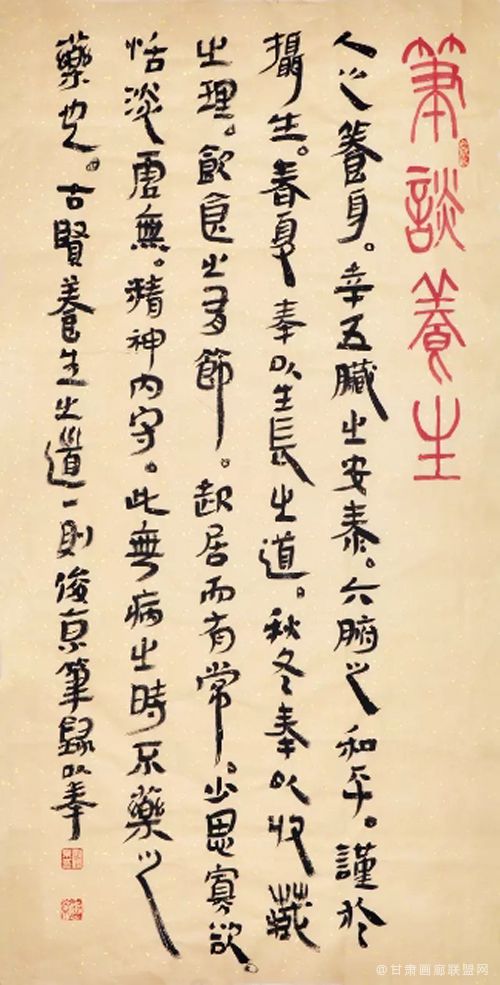 筆談養生
人之養身。幸五臟之安泰。六腑之和平。謹於
攝生。春夏奉以生長之道。秋冬奉以收藏
之理。飲食之有節。起居而有常。少思寡欲。
恬淡虛無。精神內守。此無病之時不藥之
藥也。古賢養生之道一則俊京筆録以奉
@甘肃画廊联盟网